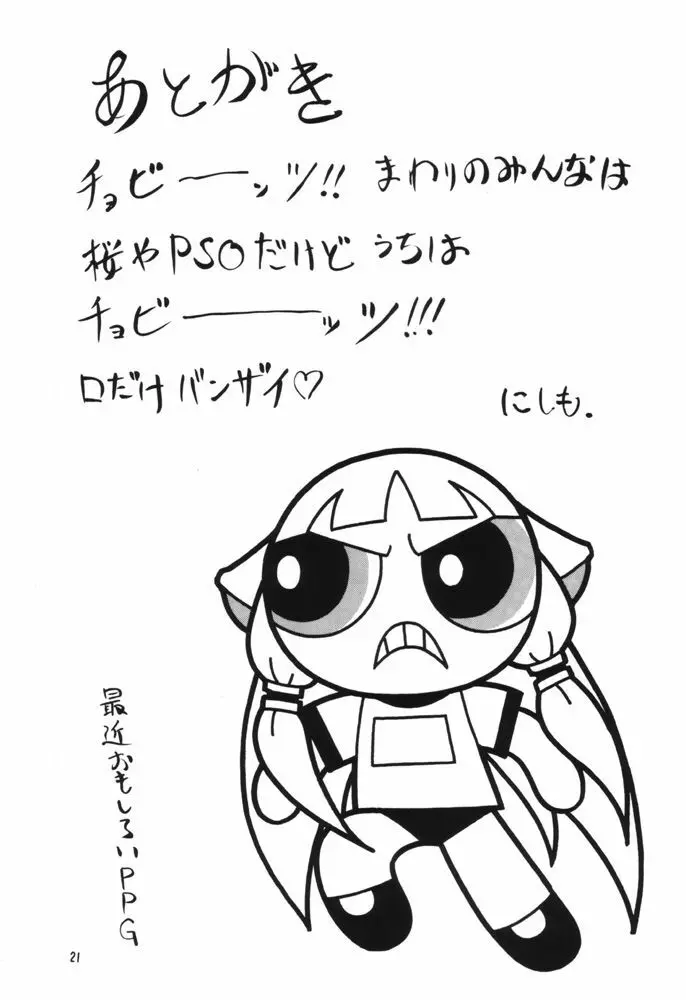 あとがき
チョビーーッツ!! まわりのみんなは
桜やPSOだけど うちは
チョビーーーッツ!!!
口だけ バンザイ♡
にしも.
最近おもしろいPPG
21